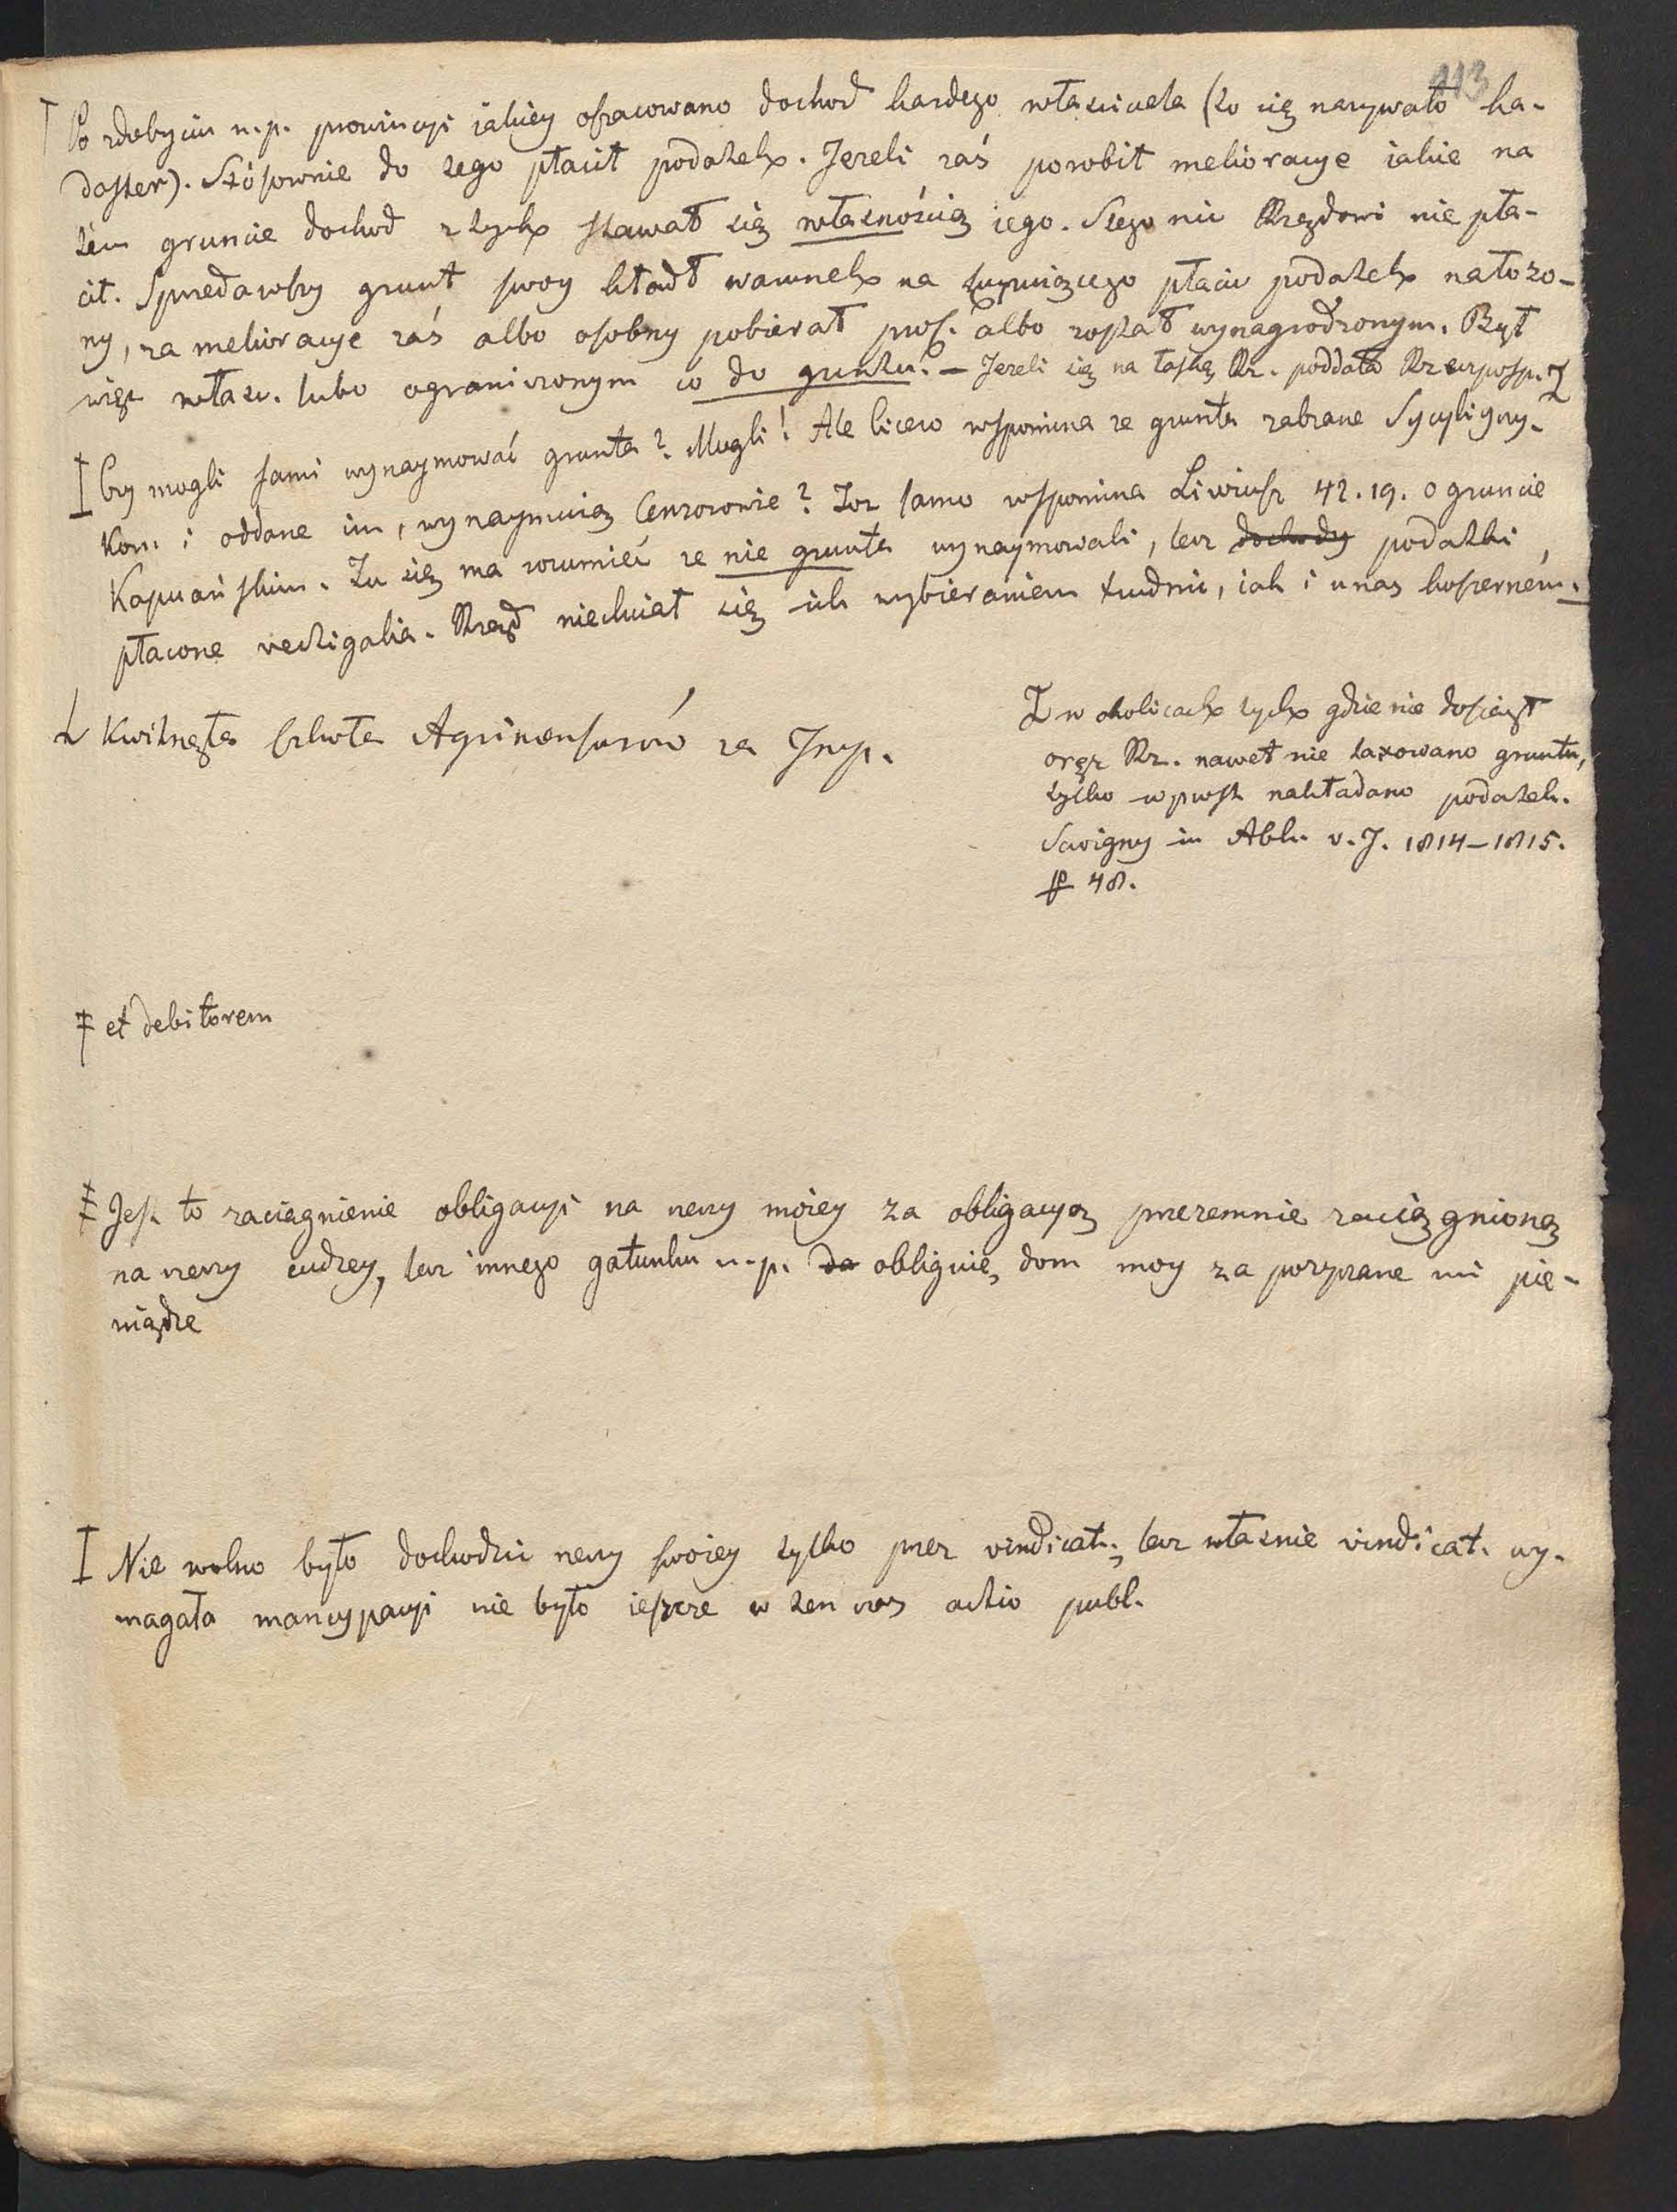 113
Po zdobyciu n.p. prowincyi iakiey oszacowano dochod każdego własciciela (to się nazywało ka-
daster). Stósownie do tego płacił podatek. Jeżeli zaś porobił melioracye iakie na
tém gruncie dochod z tych stawał się własnością iego. Z tego nic Rządowi nie pła-
cił. Sprzedawszy grunt swoy kładł warunek na kupuiącego płacić podatek nałożo-
ny, za melioracye zaś albo osobny pobierał proc. albo został wynagrodzonym. Był
więc własc. lubo ograniczonym co do gruntu. – Jeżeli się na łaskę Rz. poddała Rzeczposp.
Czy mogli sami wynaymować grunta? Mogli! Ale Cicero wspomina że grunta zabrane Sycyliyczy-
kom i oddane im, wynaymuią Cenzorowie? Toż samo wspomina Liwiusz 42.19. o gruncie
Kapuańskim. Tu się ma rozumieć że nie grunta wynaymowali, lecz dochody podatki,
płacone vectigalia. Rząd niechciał się ich wybieraniem trudnić, iak i u nas koszerném.
Kwitnęła szkoła Agrimensorów za Imp.
w okolicach tych gdzie nie dosięgł
oręż Rz. nawet nie taxowano gruntu,
tylko wprost nakładano podatek.
Savigny in Abh. v. J. 1814–1815.
p 48.
et debitorem
Jest to zaciągnienie obligacyi na rzeczy moiey za obligacyą przezemnie zaciągnioną
na rzeczy cudzey, lecz innego gatunku n.p. da obliguię dom moy za pożyczane mi pie-
niądze
Nie wolno było dochodzić rzeczy swoiey tylko przez vindicat., lecz własnie vindicat. wy-
magała mancypacyi nie było ieszcze w ten czas actio publ.